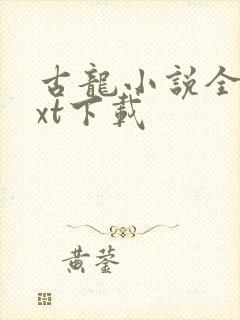 古龍小說全
xt下載
黄蓥